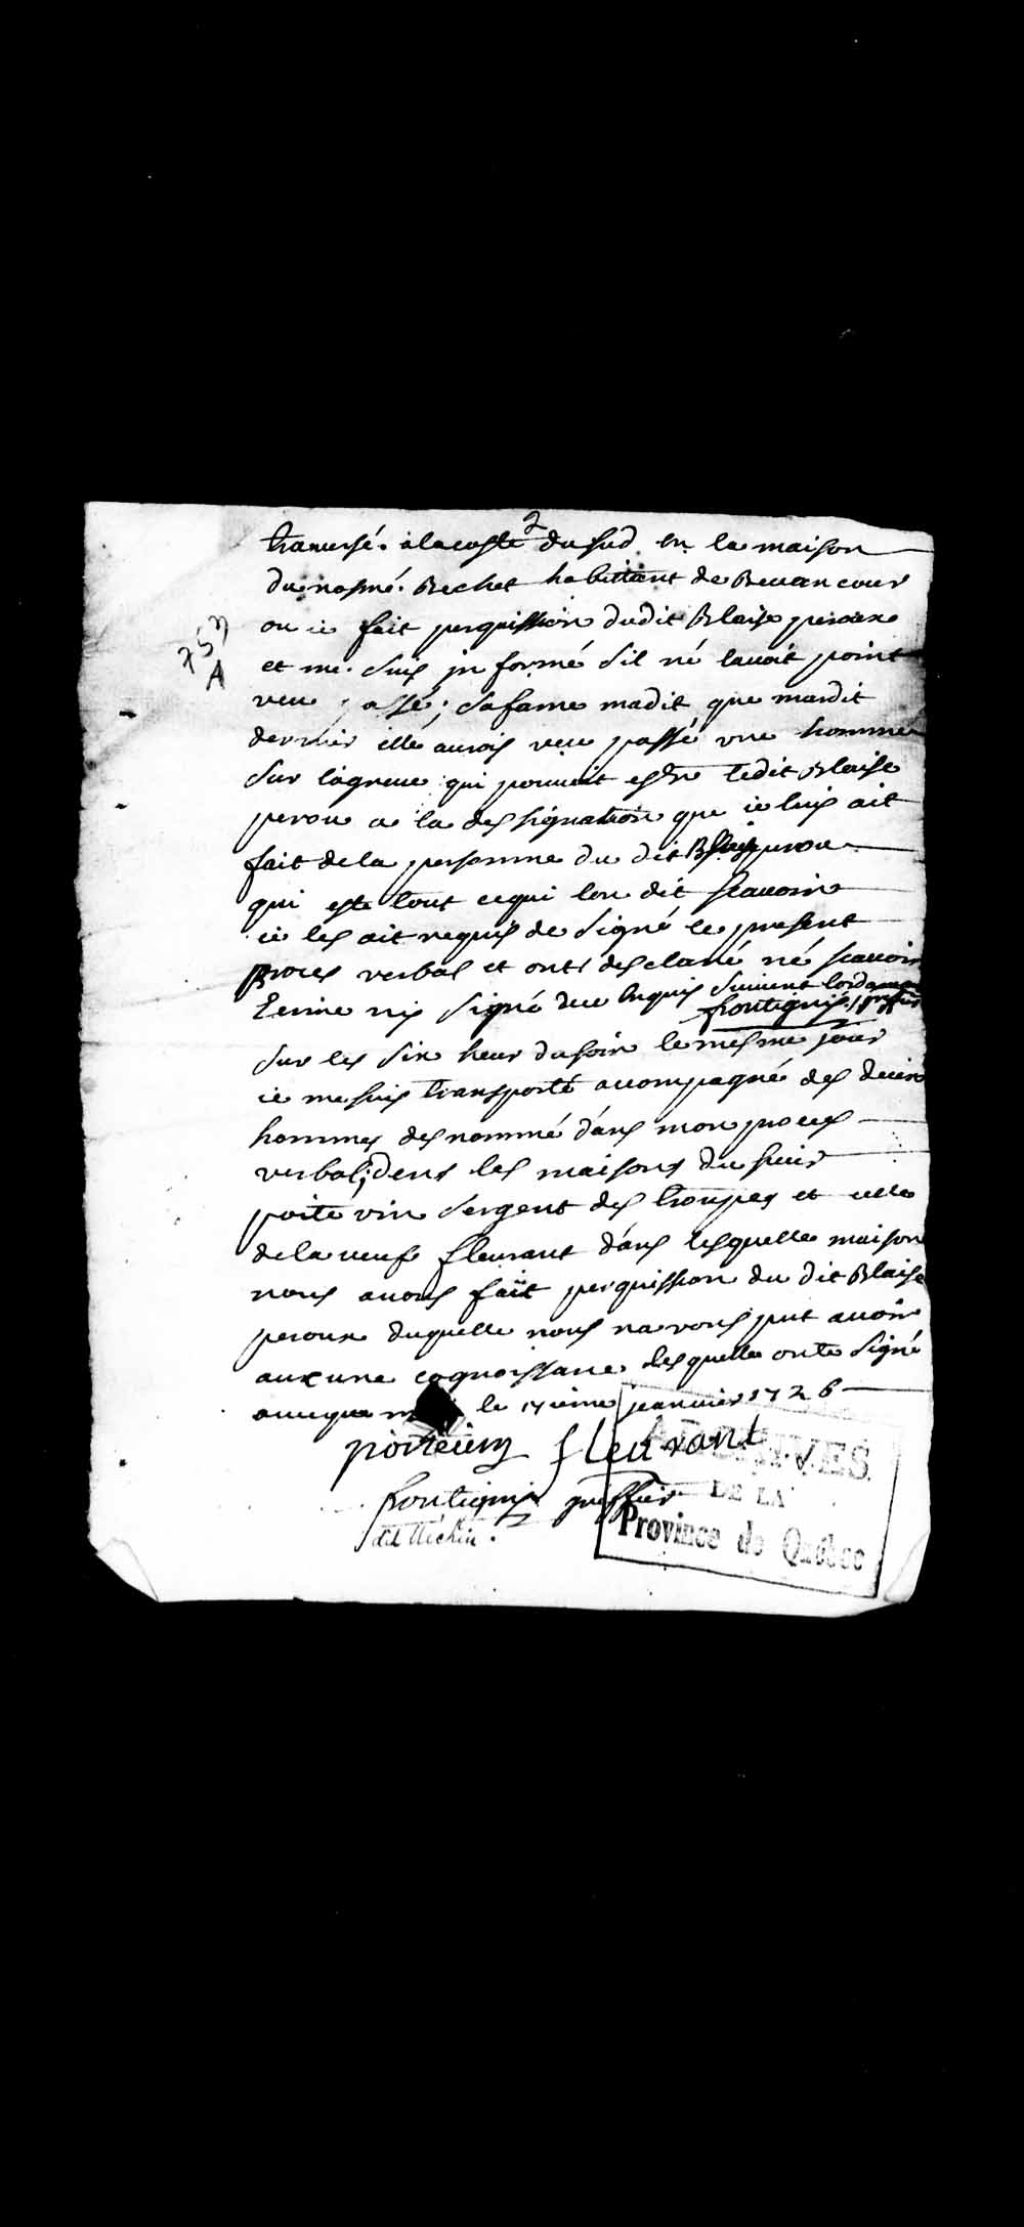 2
trauersé. a la coste du sud en la maison
du nosmé. Bechet habittant de Becuancour
ou ie fait perquission dudit Blaise peroux
757
A
et me. suis in formé sil né lauoit point
veu passé; sa fame madit que mardit
dernier elle aurois veu passé vne homme
sur lagreue qui pouuoit estre ledit Blaise
perou a la deshignation que ie luis ait
fait de la personne du dit Blaise perou
qui este tout cequi lon dit scauoire
ie les ait requis de signé le present
proces verbal et onts desclaré né scauoir
Ecrire nis signé de ce Enquis suivent lordonnance
pontignis greffier
sur les six heur du soir le mesme jour
ie me suis transporté acompagné des deux
hommes desnommé dans mon proces
verbal; dens les maisons du sieur
poite vin sergent des troupes et celle
de la veufe fleurant dans lesquelle maison
nous auons fait perquission du dit Blaise
peroux duquelle nous navons put auoir
aucune cognoissance lesquelle onte signé
auecque le 17 ieme jeanvier 1726
poiteuin fleurant
pontignis greffier
dit
ARCHIVES
DE LA
Province de Québec